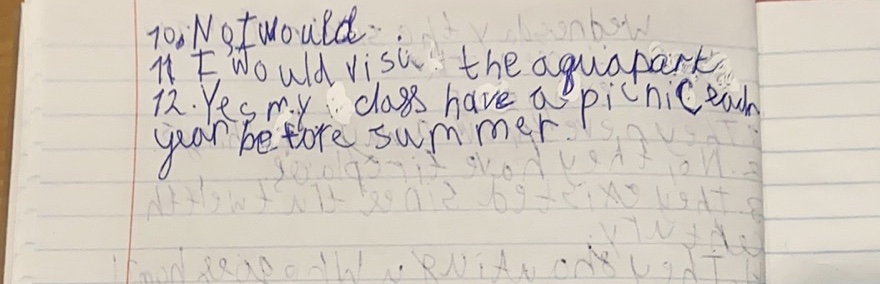 10. No I would.
11 I would visi the aquapark
12. Yes my class have a picnic each
year before summer